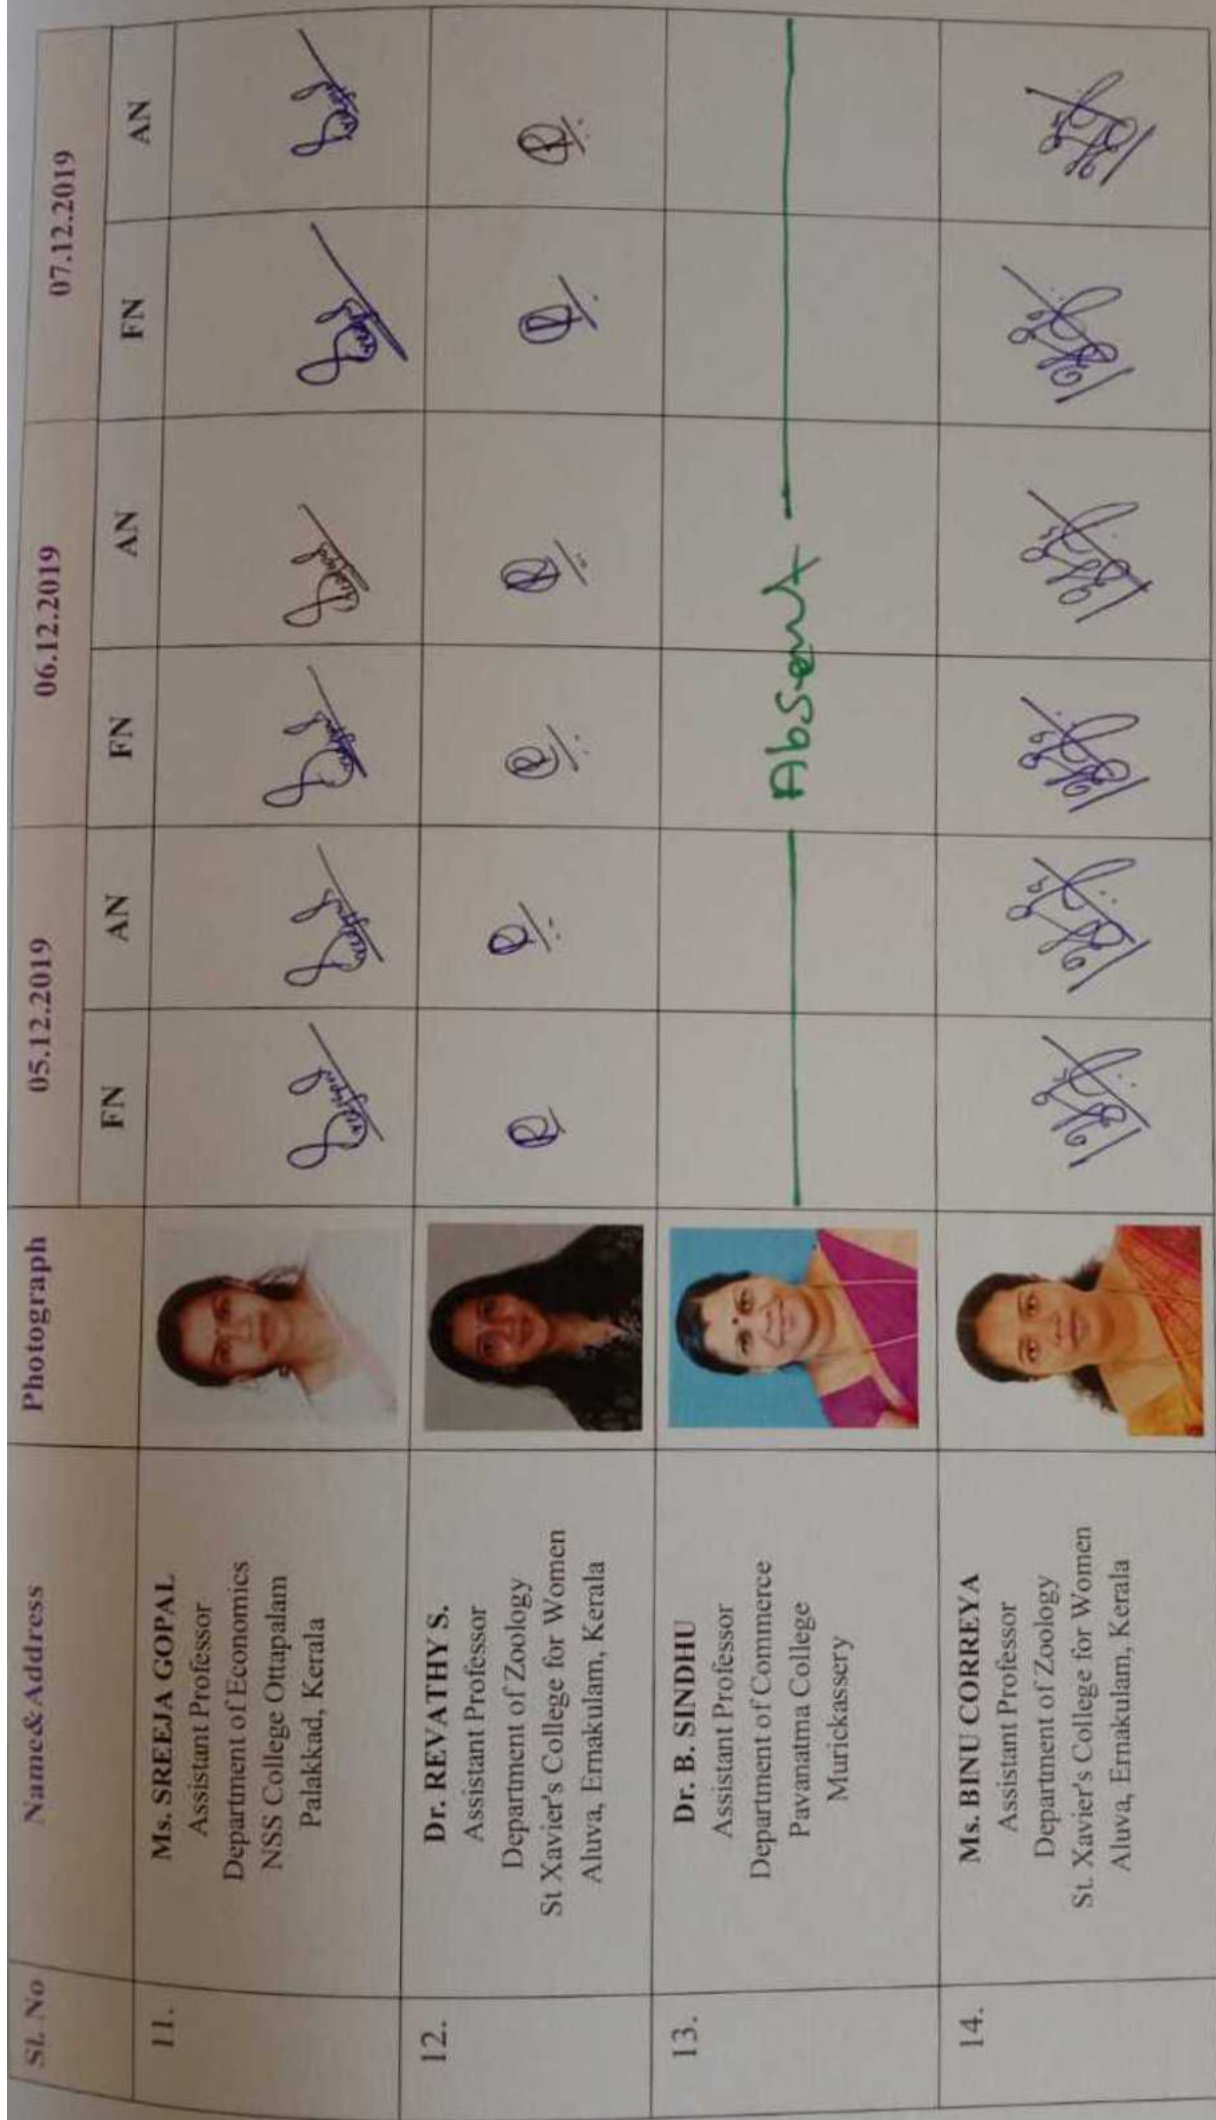 Sl. No Name&Address Photograph 05.12.2019 06.12.2019 07.12.2019
FN AN FN AN FN AN
11.
Ms. SREEJA GOPAL
Assistant Professor
Department of Economics
NSS College Ottapalam
Palakkad, Kerala
12.
Dr. REVATHY S.
Assistant Professor
Department of Zoology
St Xavier's College for Women
Aluva, Ernakulam, Kerala
13.
Dr. B. SINDHU
Assistant Professor
Department of Commerce
Pavanatma College
Murickassery
Absent
14.
Ms. BINU CORREYA
Assistant Professor
Department of Zoology
St. Xavier's College for Women
Aluva, Ernakulam, Kerala